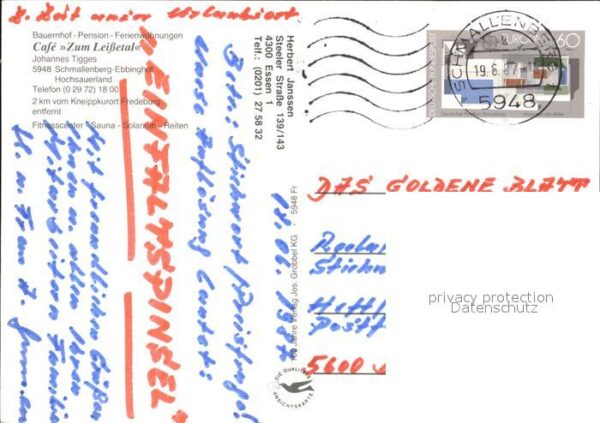 z. Zeit unser Urlaubsort
Bauernhof - Pension - Ferienwohnungen
Café »Zum Leißetal«
Johannes Tigges
5948 Schmallenberg-Ebbinghof
Hochsauerland
Telefon (0 29 72) 18 00
2 km vom Kneippkurort Fredeburg
entfernt
Fitnesscenter - Sauna - Solarium - Reiten
Herbert Janssen
Steeler Straße 139/143
4300 Essen 1
Tel.: (0201) 27 58 32
18.06.1987
Betr.: Stichwort Preisfrage!
unsere Auflösung lautet:
"EINFALTSPINSEL"
Mit freundlichen Grüßen
an alle Ihre
Mitarbeiter
H. u. Frau
100 Jahre Verlag Jos. Grobbel KG - 5948 Fr
DIE QUALITÄTS
ANSICHTSKARTE
SCHMALLENBERG
19.6.87
5948
EUROPA
60
DEUTSCHE BUNDESPOST
Deutscher Pavillon Barcelona
Mies van der Rohe
DAS GOLDENE BLATT
5600
privacy protection
Datenschutz